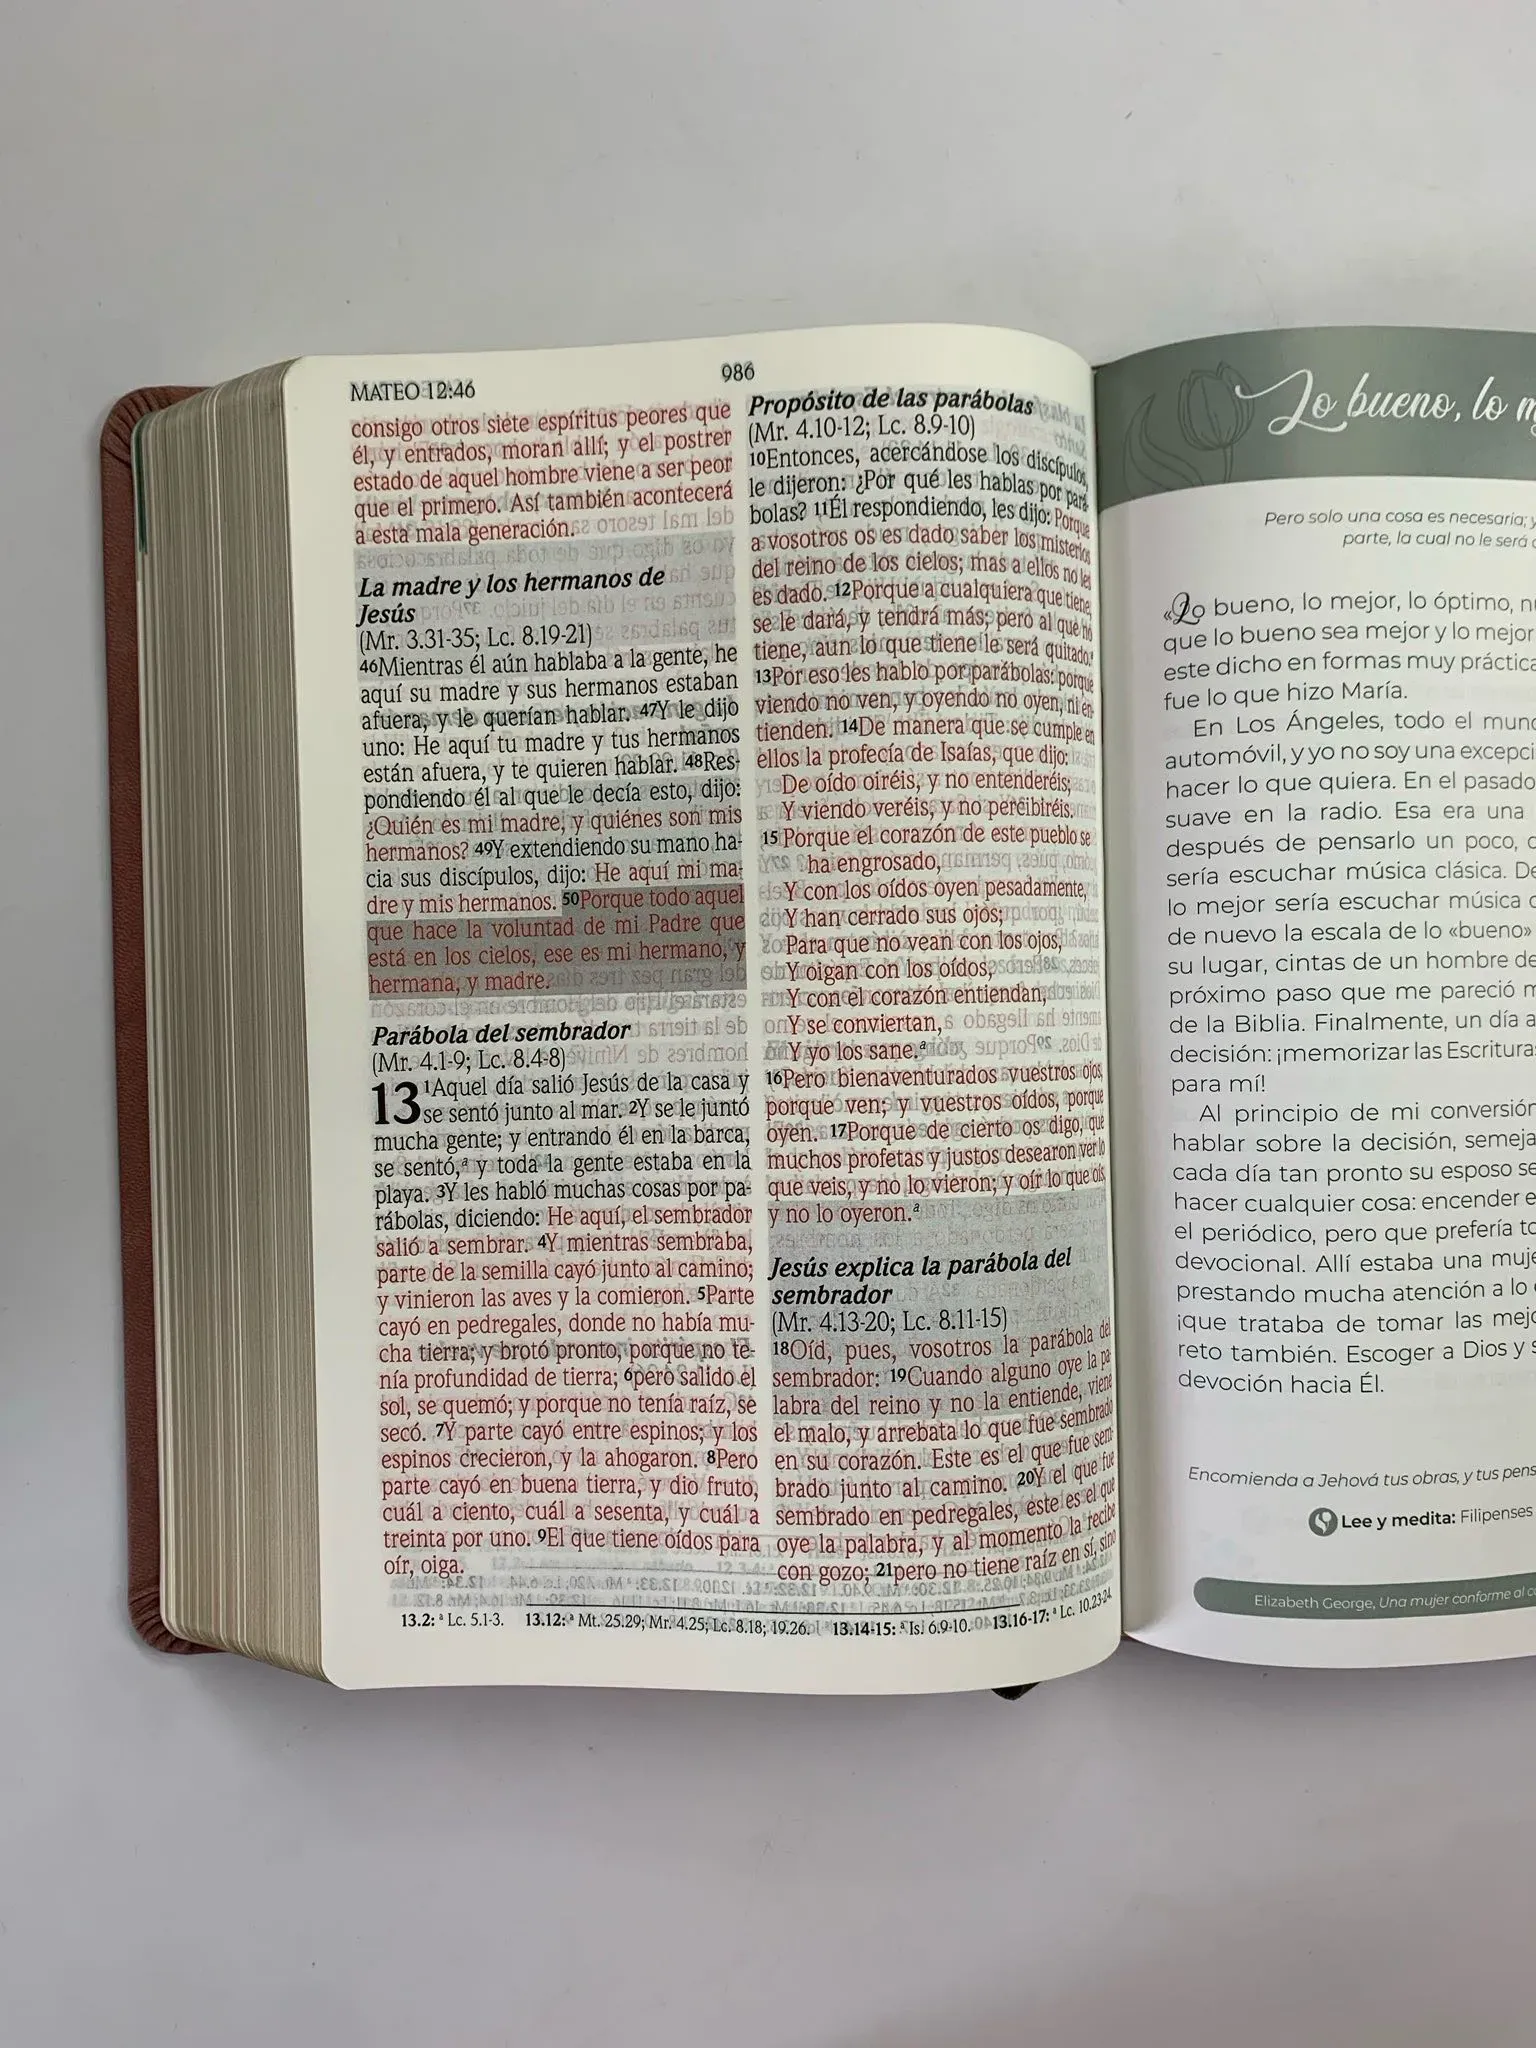 MATEO 12:46
986
consigo otros siete espíritus peores que
él, y entrados, moran allí; y el postrer
estado de aquel hombre viene a ser peor
que el primero. Así también acontecerá
a esta mala generación.
La madre y los hermanos de
Jesús
(Mr. 3.31-35; Lc. 8.19-21)
46Mientras él aún hablaba a la gente, he
aquí su madre y sus hermanos estaban
afuera, y le querían hablar. 47Y le dijo
uno: He aquí tu madre y tus hermanos
están afuera, y te quieren hablar. 48Res-
pondiendo él al que le decía esto, dijo:
¿Quién es mi madre, y quiénes son mis
hermanos? 49Y extendiendo su mano ha-
cia sus discípulos, dijo: He aquí mi ma-
dre y mis hermanos. 50Porque todo aquel
que hace la voluntad de mi Padre que
está en los cielos, ese es mi hermano, y
hermana, y madre.
Parábola del sembrador
(Mr. 4.1-9; Lc. 8.4-8)
13 1Aquel día salió Jesús de la casa y
se sentó junto al mar. 2Y se le juntó
mucha gente; y entrando él en la barca,
se sentó,a y toda la gente estaba en la
playa. 3Y les habló muchas cosas por pa-
rábolas, diciendo: He aquí, el sembrador
salió a sembrar. 4Y mientras sembraba,
parte de la semilla cayó junto al camino;
y vinieron las aves y la comieron. 5Parte
cayó en pedregales, donde no había mu-
cha tierra; y brotó pronto, porque no te-
nía profundidad de tierra; 6pero salido el
sol, se quemó; y porque no tenía raíz, se
secó. 7Y parte cayó entre espinos; y los
espinos crecieron, y la ahogaron. 8Pero
parte cayó en buena tierra, y dio fruto,
cuál a ciento, cuál a sesenta, y cuál a
treinta por uno. 9El que tiene oídos para
oír, oiga.
Propósito de las parábolas
(Mr. 4.10-12; Lc. 8.9-10)
10Entonces, acercándose los discípulos,
le dijeron: ¿Por qué les hablas por pará-
bolas? 11Él respondiendo, les dijo: Porque
a vosotros os es dado saber los misterios
del reino de los cielos; mas a ellos no les
es dado. 12Porque a cualquiera que tiene,
se le dará, y tendrá más; pero al que no
tiene, aun lo que tiene le será quitado.a
13Por eso les hablo por parábolas: porque
viendo no ven, y oyendo no oyen, ni en-
tienden. 14De manera que se cumple en
ellos la profecía de Isaías, que dijo:
De oído oiréis, y no entenderéis;
Y viendo veréis, y no percibiréis.
15 Porque el corazón de este pueblo se
ha engrosado,
Y con los oídos oyen pesadamente,
Y han cerrado sus ojos;
Para que no vean con los ojos,
Y oigan con los oídos,
Y con el corazón entiendan,
Y se conviertan,
Y yo los sane.a
16Pero bienaventurados vuestros ojos,
porque ven; y vuestros oídos, porque
oyen. 17Porque de cierto os digo, que
muchos profetas y justos desearon ver lo
que veis, y no lo vieron; y oír lo que oís,
y no lo oyeron.a
Jesús explica la parábola del
sembrador
(Mr. 4.13-20; Lc. 8.11-15)
18Oíd, pues, vosotros la parábola del
sembrador: 19Cuando alguno oye la pa-
labra del reino y no la entiende, viene
el malo, y arrebata lo que fue sembrado
en su corazón. Este es el que fue sem-
brado junto al camino. 20Y el que fue
sembrado en pedregales, éste es el que
oye la palabra, y al momento la recibe
con gozo; 21pero no tiene raíz en sí, sino
13.2: a Lc. 5.1-3. 13.12: a Mt. 25.29; Mr. 4.25; Lc. 8.18; 19.26. 13.14-15: a Is. 6.9-10. 13.16-17: a Lc. 10.23-24.
Lo bueno, lo m
Pero solo una cosa es necesaria; y
parte, la cual no le será
«Lo bueno, lo mejor, lo óptimo, n
que lo bueno sea mejor y lo mejor
este dicho en formas muy práctica
fue lo que hizo María.
En Los Ángeles, todo el mun
automóvil, y yo no soy una excepci
hacer lo que quiera. En el pasado
suave en la radio. Esa era una
después de pensarlo un poco,
sería escuchar música clásica. De
lo mejor sería escuchar música
de nuevo la escala de lo «bueno»
su lugar, cintas de un hombre de
próximo paso que me pareció m
de la Biblia. Finalmente, un día a
decisión: ¡memorizar las Escritura
para mí!
Al principio de mi conversión
hablar sobre la decisión, semeja
cada día tan pronto su esposo se
hacer cualquier cosa: encender e
el periódico, pero que prefería to
devocional. Allí estaba una muje
prestando mucha atención a lo
¡que trataba de tomar las mejo
reto también. Escoger a Dios y s
devoción hacia Él.
Encomienda a Jehová tus obras, y tus pens
Lee y medita: Filipenses
Elizabeth George, Una mujer conforme al c